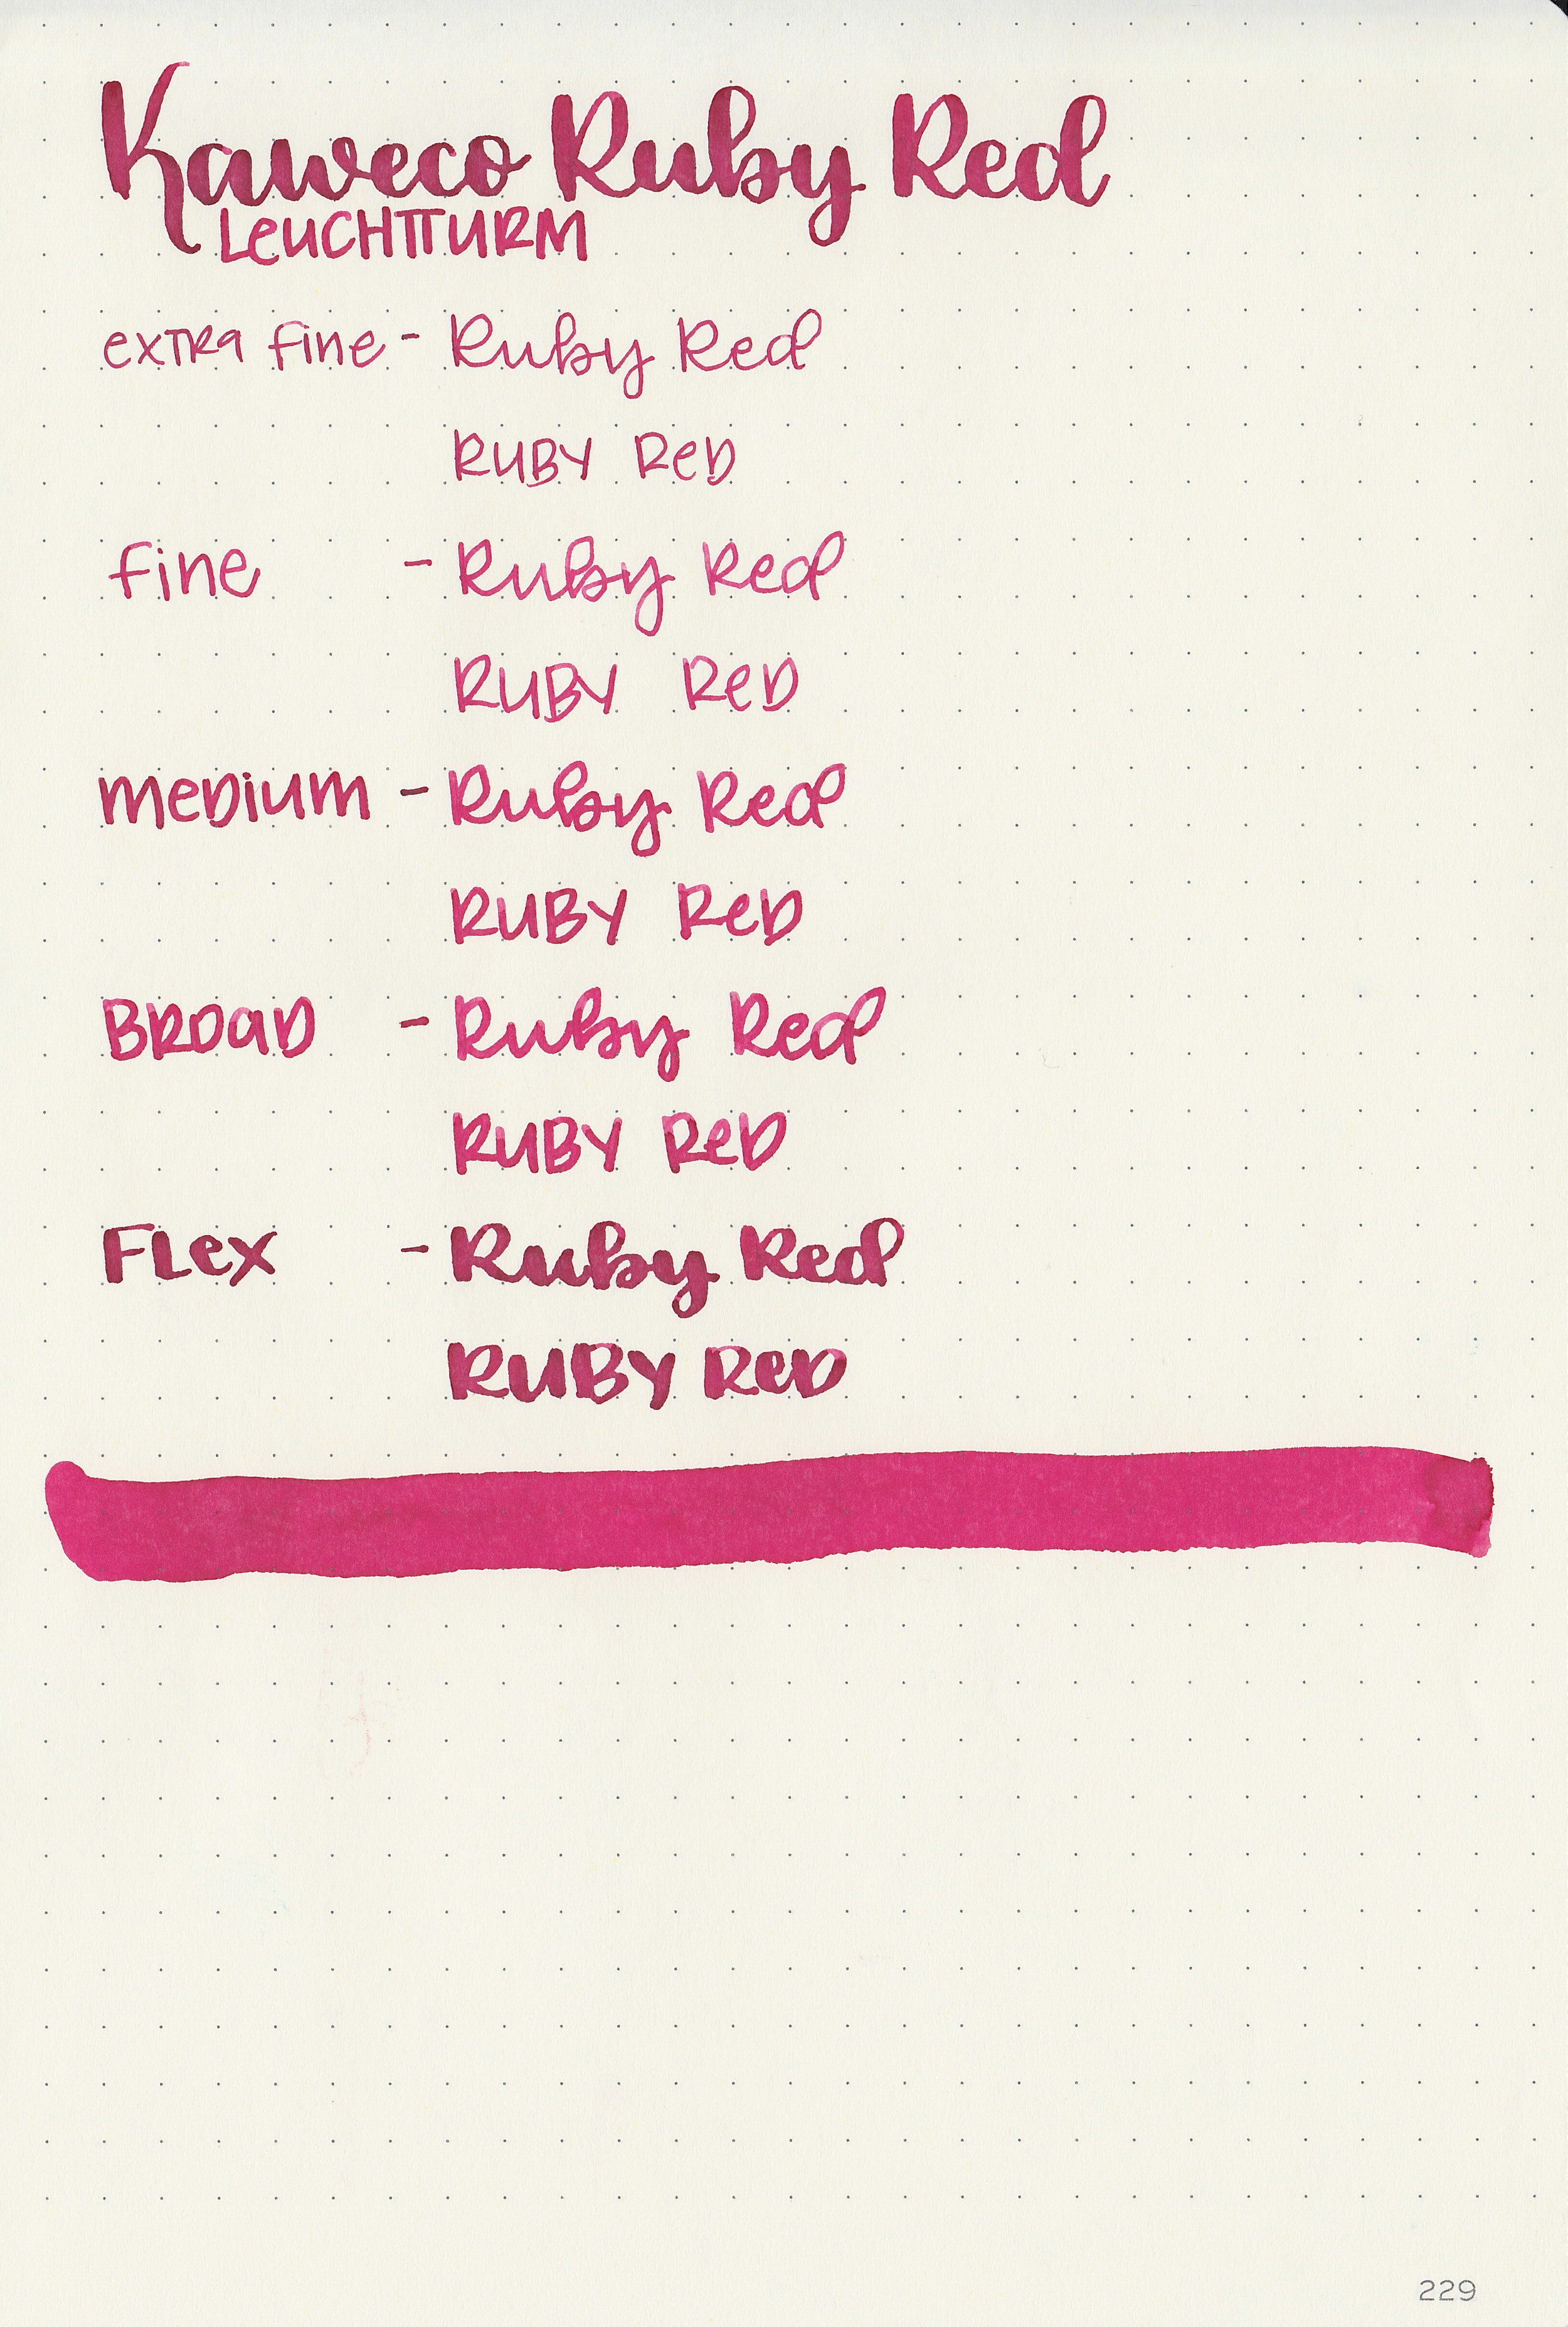 Kaweco Ruby Red
LeUCHTTURM
exTRa fine - Ruby Red
RUBY ReD
fine - Ruby Red
RUBY ReD
meDium - Ruby Red
RUBY ReD
BROaD - Ruby Red
RUBY ReD
FLex - Ruby Red
RUBY ReD
229